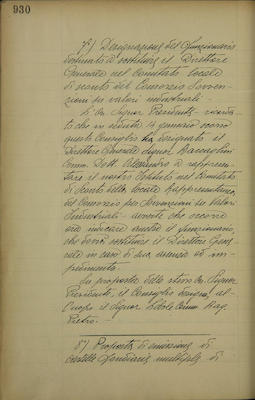 930
7°) Designazione del funzionario
destinato a sostituire il Direttore
Generale nel Comitato locale
di sconto del Consorzio Sovven-
zioni su valori industriali. -
L'On. Signor Presidente
to che in seduta gennaio scorso
questo Consiglio ha designato il
Direttore Generale Signor
Comm. Dott. Alessandro a rappresen-
tare il nostro Istituto nel Comitato
di Sconto della locale Rappresentanza
del Consorzio per Sovvenzioni su Valori
Industriali - avverte che occorre
ora indicare anche il funzionario
che dovrà sostituire il Direttore Gene-
rale in caso di sua assenza od im-
pedimento.
Su proposta dello stesso On. Signor
Presidente, il Consiglio designa al-
l'uopo il Signor Comm. Rag.
Pietro. -
8°) Proposta di emissione di
cartelle fondiarie multiple di